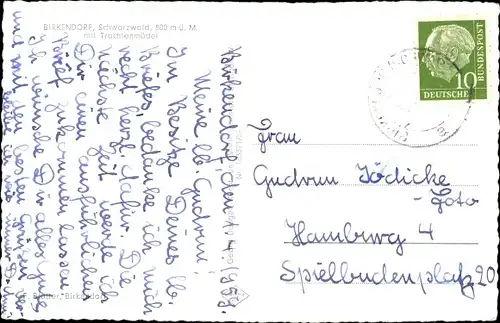 BIRKENDORF, Schwarzwald, 800 m ü. M.
mit Trachtenmädel
Birkendorf, den 1959.
Meine lb. Gudrun!
Im Besitze Deines lb.
Briefes, bedanke ich mich
recht herzl. dafür. Die
nächste Zeit werde ich
Dir einen ausführlichen
Brief zukommen lassen
Ich wünsche Dir alles gute
und mit den besten Grüßen
DEUTSCHE
BUNDESPOST
10
Frau
Gudrun Jödicke-
Foto
Hamburg 4
Spielbudenplatz 20
Blatter, Birkendorf